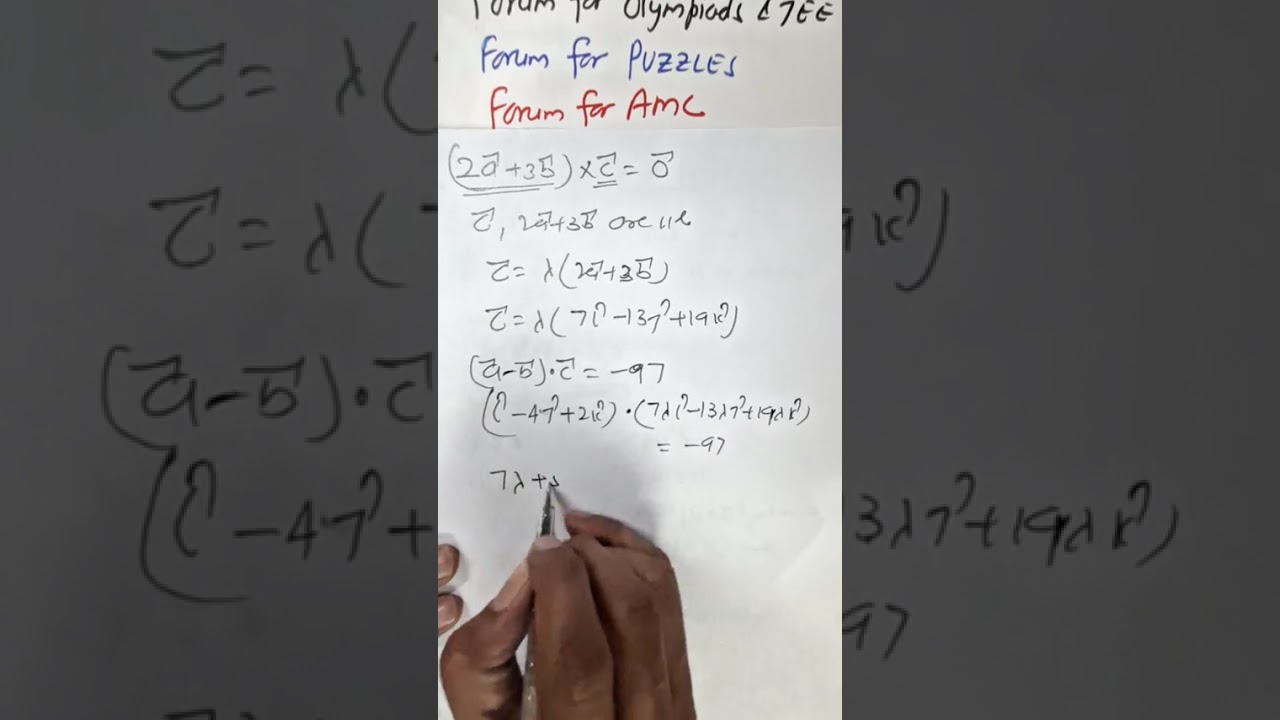 Forum for Olympiads & JEE
Forum for PUZZLES
Forum for AMC
(2a⃗+3b⃗)×c⃗=0⃗
c⃗, 2a⃗+3b⃗ are ||l
c⃗= λ(2a⃗+3b⃗)
c⃗=λ(7î-13ĵ+19k̂)
(a⃗-b⃗)·c⃗ = -97
(î-4ĵ+2k̂)·(7λî-13λĵ+19λk̂)
= -97
7λ+